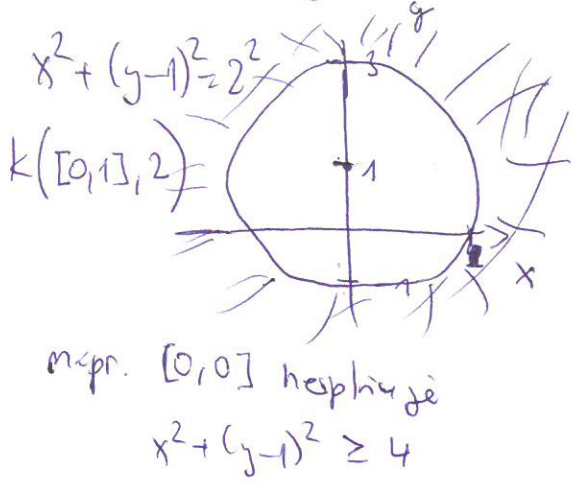 x² + (y-1)² = 2²
k([0,1], 2)
y
3
1
1
x
např. [0,0] nesplňuje
x² + (y-1)² ≥ 4